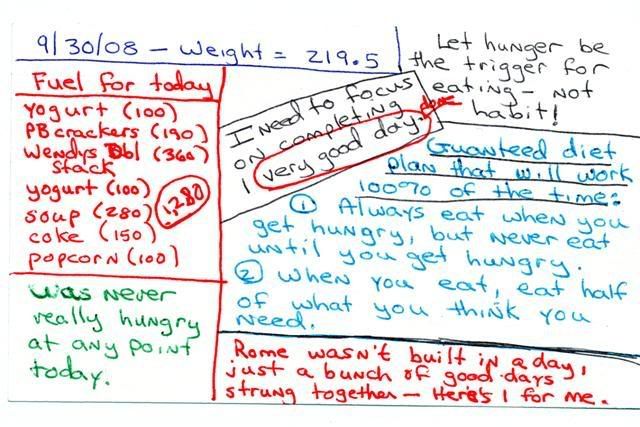 9/30/08 - Weight = 219.5
Let hunger be
the trigger for
eating - not
habit!
Fuel for today
Yogurt (100)
PB crackers (190)
Wendys Dbl (360)
stack
yogurt (100)
soup (280)
coke (150)
popcorn (100)
1,280
I need to focus
on completing
1 very good day.
done
Guanteed diet
plan that will work
100% of the time:
① Always eat when you
get hungry, but never eat
until you get hungry.
② When you eat, eat half
of what you think you
need.
Was never
really hungry
at any point
today.
Rome wasn't built in a day,
just a bunch of good days
strung together - Here's 1 for me.